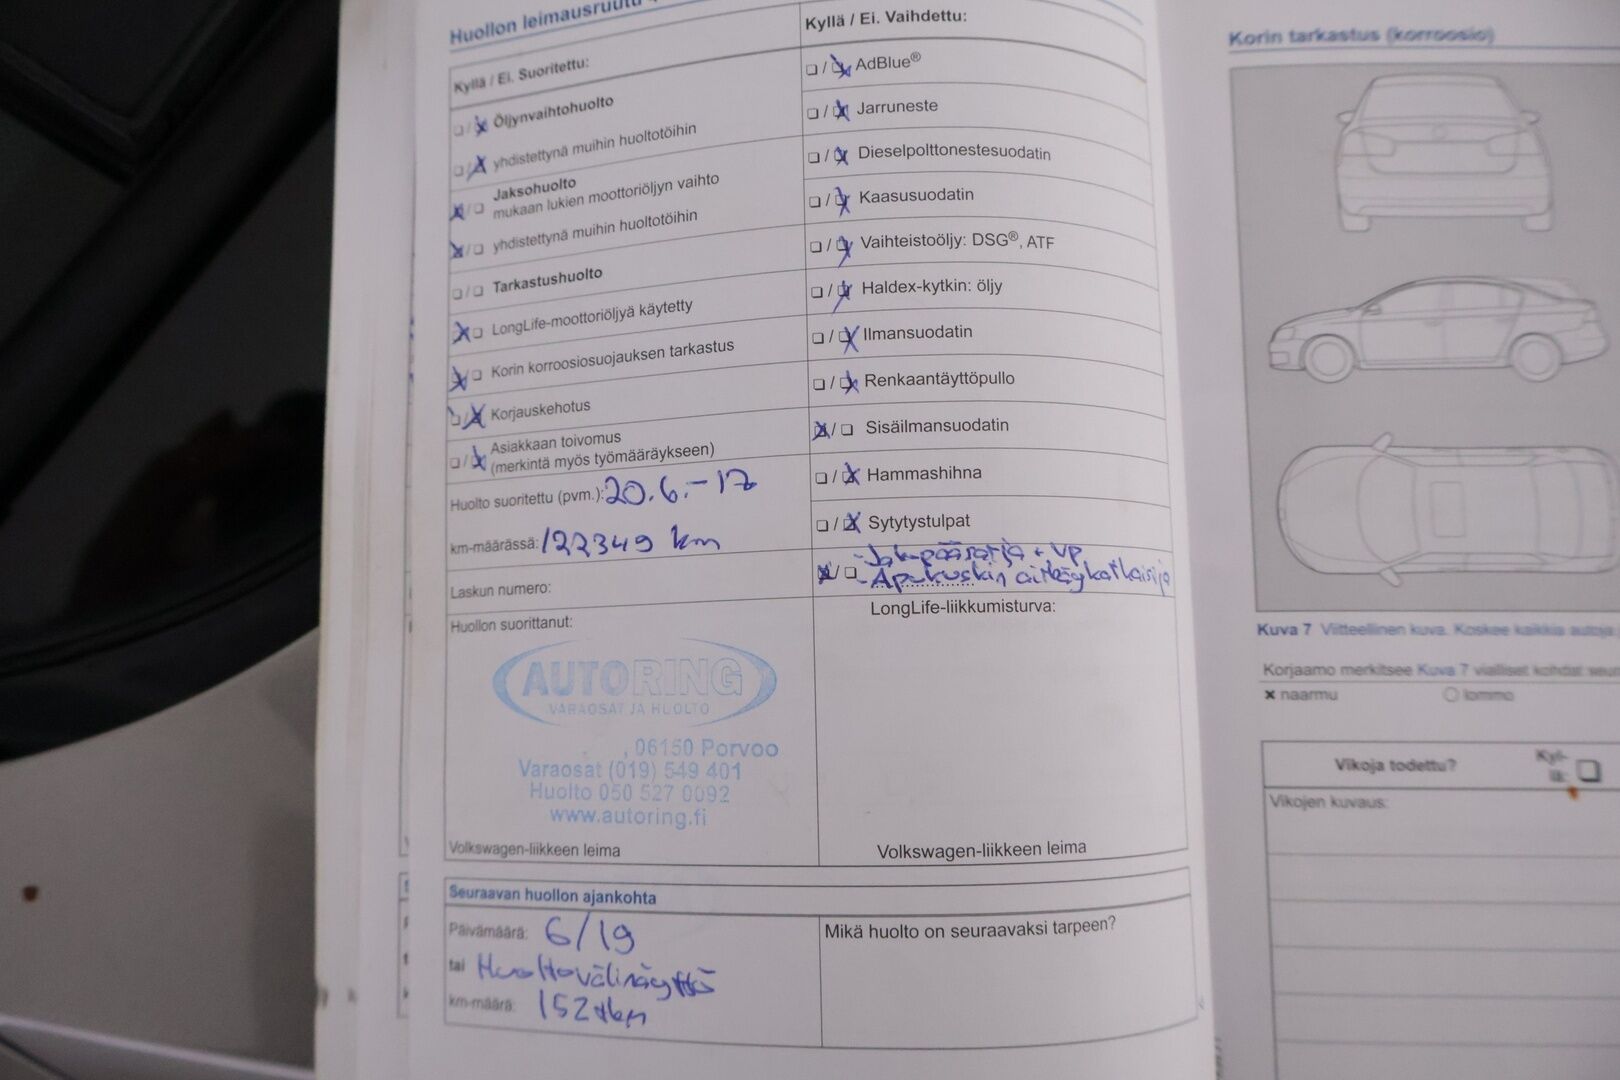 Huollon leimausruutu
Kyllä / Ei. Suoritettu:
Öljynvaihtohuolto
yhdistettynä muihin huoltotöihin
Jaksohuolto
mukaan lukien moottoriöljyn vaihto
yhdistettynä muihin huoltotöihin
Tarkastushuolto
LongLife-moottoriöljyä käytetty
Korin korroosiosuojauksen tarkastus
Korjauskehotus
Asiakkaan toivomus
(merkintä myös työmääräykseen)
Huolto suoritettu (pvm.): 20.6.-17
km-määrässä: 122349 km
Laskun numero:
Huollon suorittanut:
AUTORING
VARAOSAT JA HUOLTO
, 06150 Porvoo
Varaosat (019) 549 401
Huolto 050 527 0092
www.autoring.fi
Volkswagen-liikkeen leima
Kyllä / Ei. Vaihdettu:
AdBlue®
Jarruneste
Dieselpolttonestesuodatin
Kaasusuodatin
Vaihteistoöljy: DSG®, ATF
Haldex-kytkin: öljy
Ilmansuodatin
Renkaantäyttöpullo
Sisäilmansuodatin
Hammashihna
Sytytystulpat
- Jakopääsarja + VP
- Apukuskin
LongLife-liikkumisturva:
Volkswagen-liikkeen leima
Seuraavan huollon ajankohta
Päivämäärä: 6/19
tai Huoltovälinäyttö
km-määrä: 152tkm
Mikä huolto on seuraavaksi tarpeen?
Korin tarkastus (korroosio)
Kuva 7 Viitteellinen kuva. Koskee kaikkia autoja
Korjaamo merkitsee Kuva 7 vialliset kohdat
naarmu
lommo
Vikoja todettu?
Kyl-
lä:
Vikojen kuvaus: